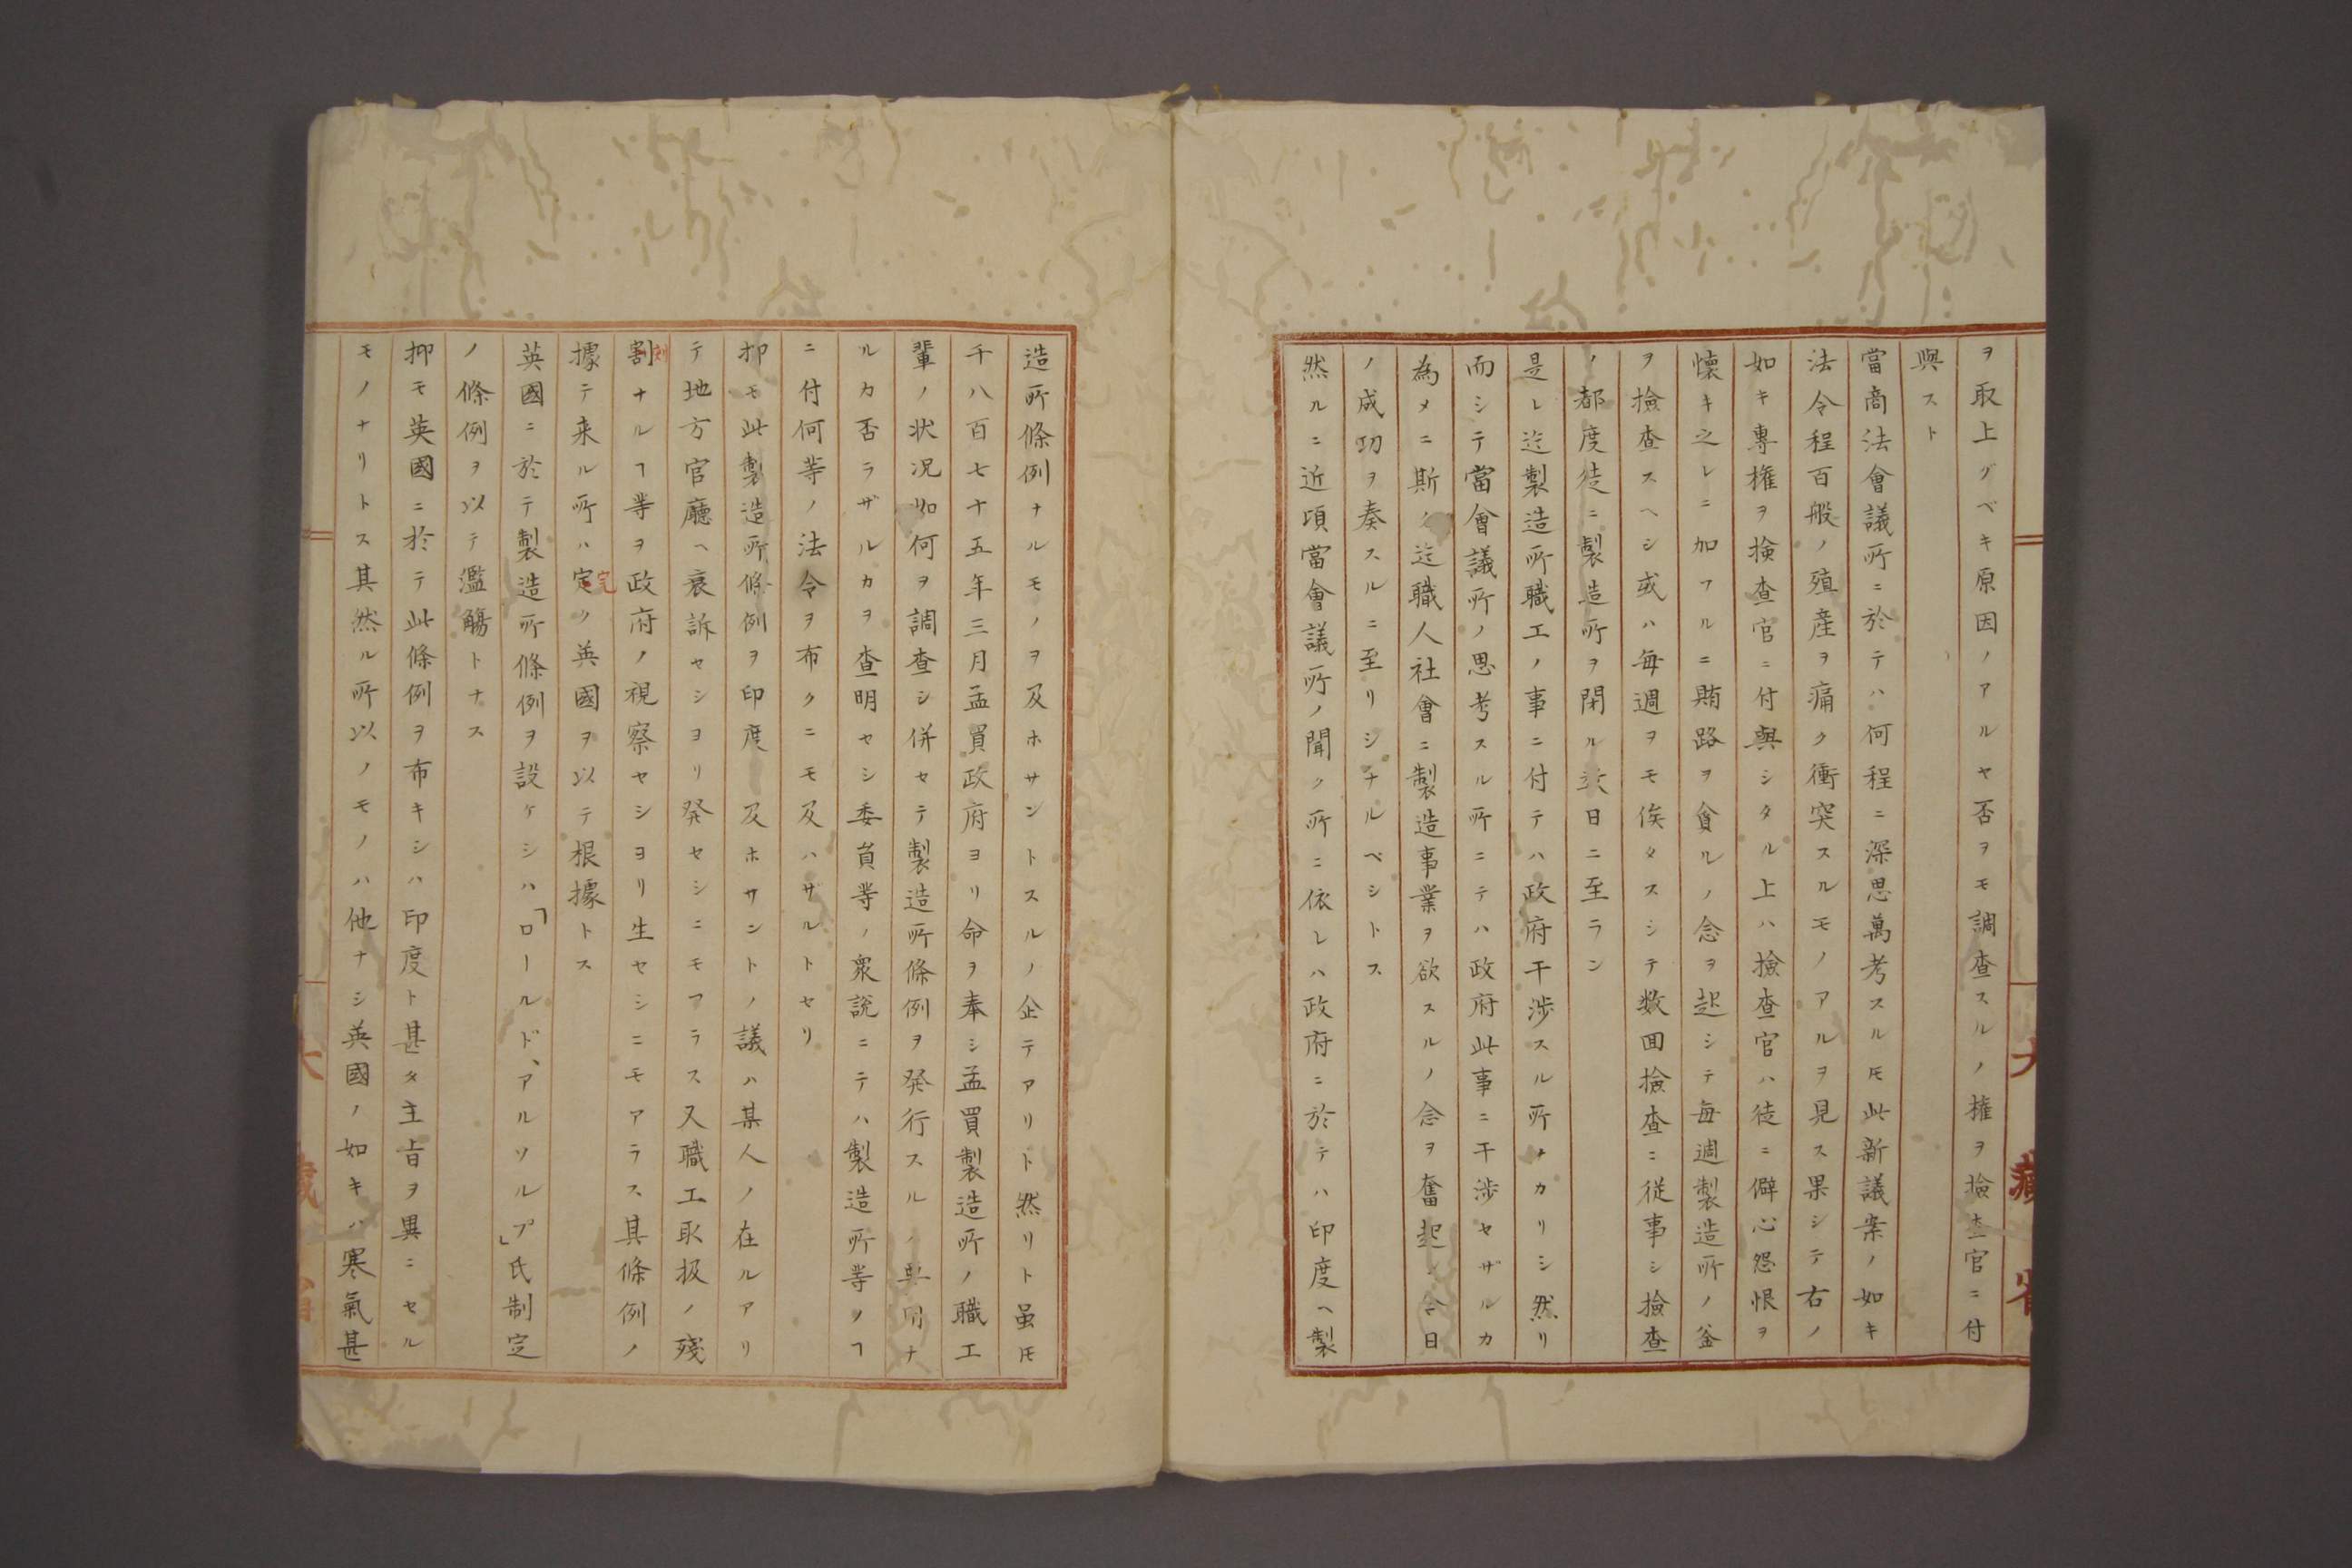 ヲ取上グベキ原因ノアルヤ否ヲモ調査スルノ権ヲ撿査官ニ付
與スト
當商法會議所ニ於テハ何程ニ深思萬考スル𪜈此新議案ノ如キ
法令程百般ノ殖産ヲ痛ク衝突スルモノアルヲ見ス果シテ右ノ
如キ專権ヲ撿査官ニ付與シタル上ハ撿査官ハ徒ニ僻心怨恨ヲ
懐キ之レニ加フルニ賄路ヲ貪ルノ念ヲ起シテ毎週製造所ノ釜
ヲ撿査スヘシ或ハ毎週ヲモ俟タスシテ数囬撿査ニ従事シ撿査
ノ都度徒ニ製造所ヲ閉ル日ニ至ラン
是レ迄製造所職工ノ事ニ付テハ政府干渉スル所ナカリシ然リ
而シテ當會議所ノ思考スル所ニテハ政府此事ニ干渉セザルカ
為メニ斯ク迄職人社會ニ製造事業ヲ欲スルノ念ヲ奮起シ今日
ノ成功ヲ奏スルニ至リシナルベシトス
然ルニ近頃當會議所ノ聞ク所ニ依レハ政府ニ於テハ印度ヘ製
造所條例ナルモノヲ及ホサントスルノ企テアリト然リト虽𪜈
千八百七十五年三月孟買政府ヨリ命ヲ奉シ孟買製造所ノ職工
輩ノ状况如何ヲ調査シ併セテ製造所條例ヲ発行スルノ要用ナ
ルカ否ラザルカヲ査明セシ委員等ノ衆説ニテハ製造所等ノヿ
ニ付何等ノ法令ヲ布クニモ及ハザルトセリ
抑モ此製造所條例ヲ印度及ホサントノ議ハ某人ノ在ルアリ
テ地方官廳ヘ哀訴セシヨリ発セシニモアラス又職工取扱ノ殘
割ナルヿ等ヲ政府ノ視察セシヨリ生セシニモアラス其條例ノ
據テ来ル所ハ定ク英國ヲ以テ根據トス
英國ニ於テ製造所條例ヲ設ケシハ「ロールド、アルソルプ」氏制定
ノ條例ヲ以テ濫觴トナス
抑モ英國ニ於テ此條例ヲ布キシハ印度ト甚タ主旨ヲ異ニセル
モノナリトス其然ル所以ノモノハ他ナシ英國ノ如キハ寒氣甚
刻
完
大藏省